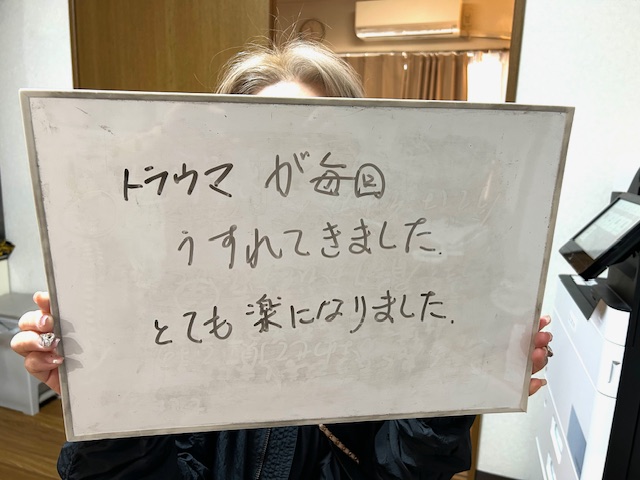 トラウマが毎回
うすれてきました.
とても楽になりました.